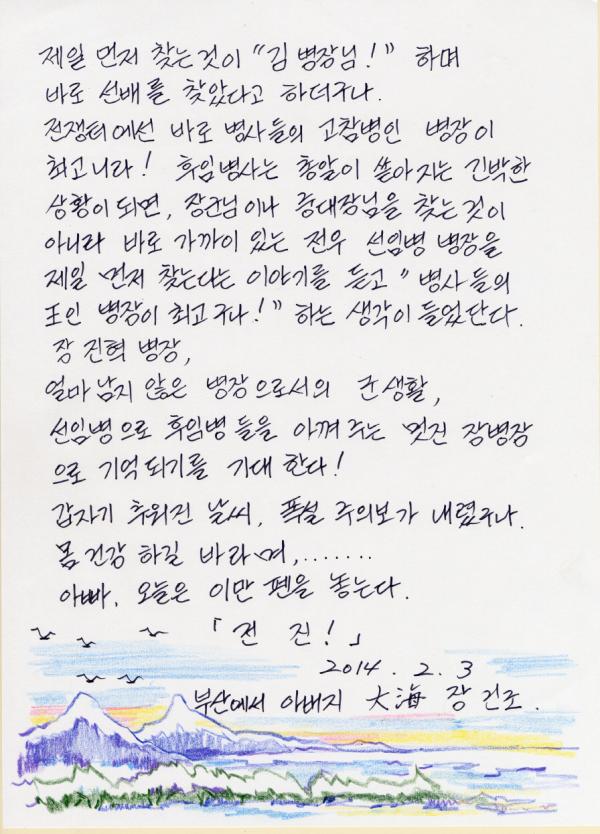 제일 먼저 찾는것이 "김 병장님!" 하며
바로 선배를 찾았다고 하더구나.
전쟁터에선 바로 병사들의 고참병인 병장이
최고니라! 후임병사는 총알이 쏟아지는 긴박한
상황이 되면, 장군님이나 중대장님을 찾는것이
아니라 바로 가까이 있는 전우 선임병 병장을
제일 먼저 찾는다는 이야기를 듣고 "병사들의
王인 병장이 최고구나!" 하는 생각이 들었단다.
장 진혁 병장,
얼마남지 않은 병장으로서의 군생활,
선임병으로 후임병들을 아껴주는 멋진 장병장
으로 기억되기를 기대한다!
갑자기 추워진 날씨, 폭설 주의보가 내렸구나.
몸 건강 하길 바라며,.......
아빠, 오늘은 이만 펜을 놓는다.
「전 진!」
2014. 2. 3
부산에서 아버지 大海 장건조.